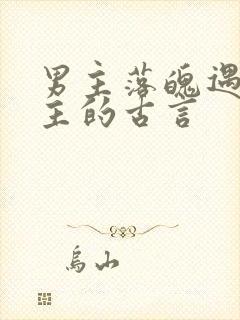 男主落魄遇
主的古言
乌山